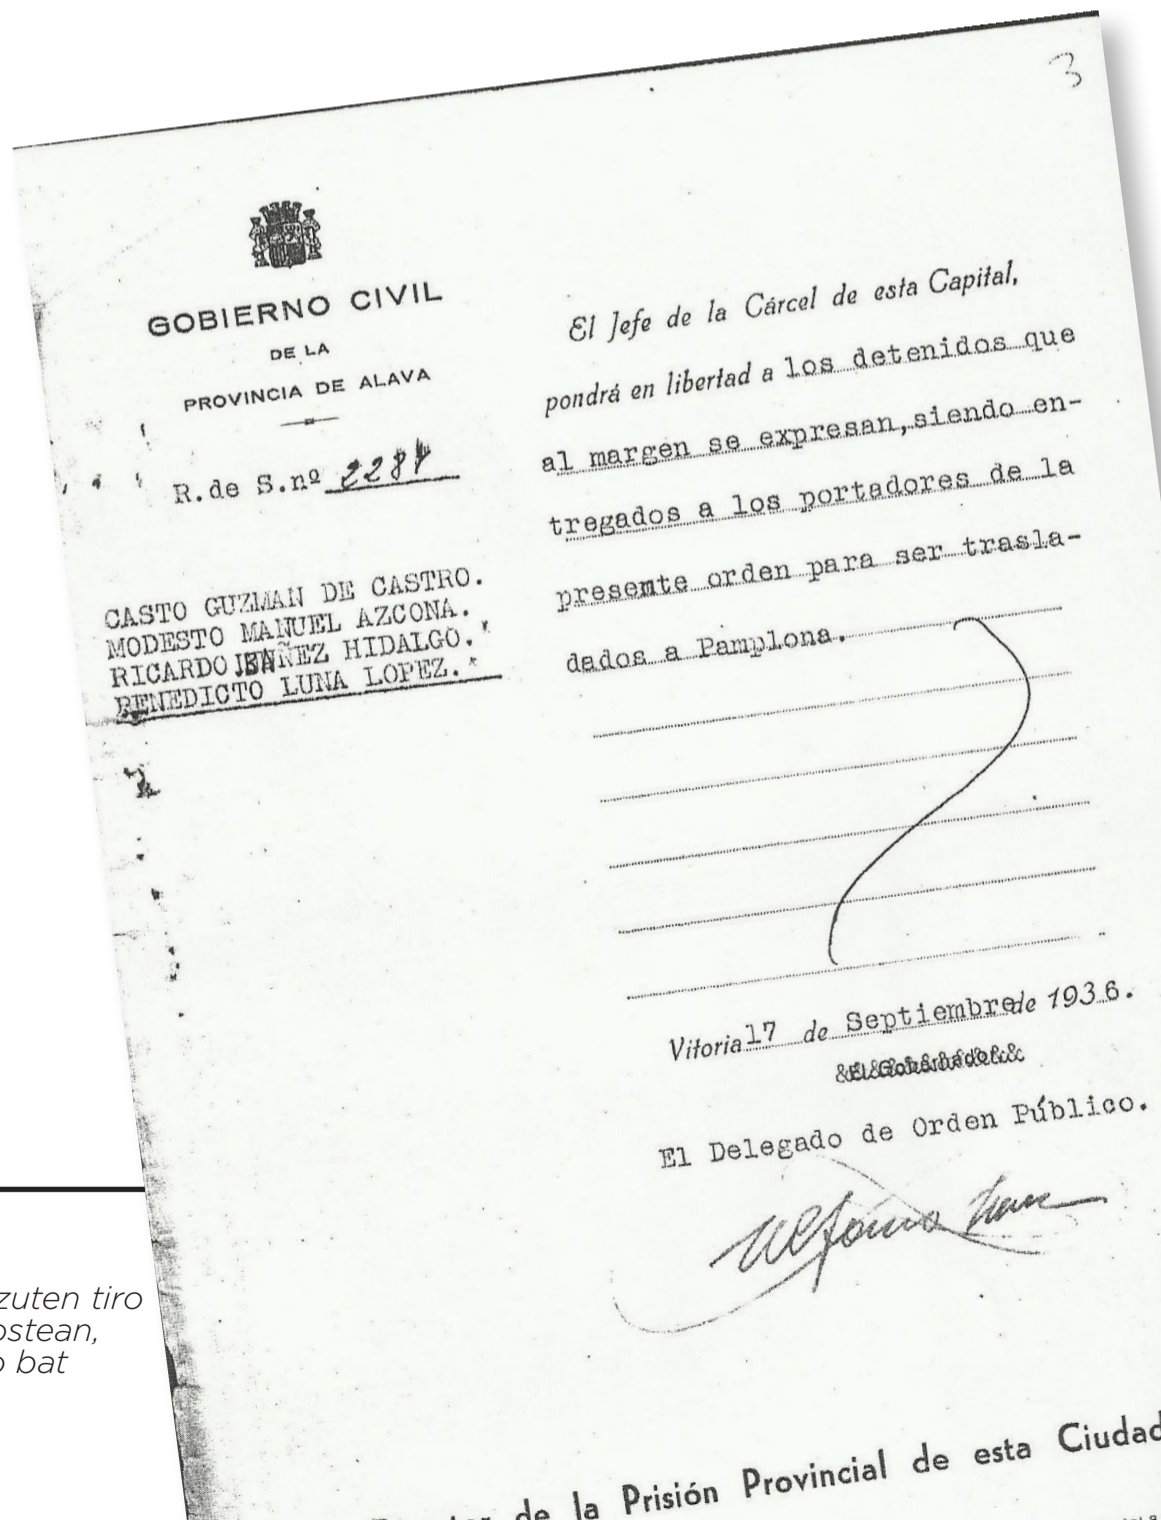 3
GOBIERNO CIVIL
DE LA
PROVINCIA DE ALAVA
R.de S.nº
CASTO GUZMAN DE CASTRO.
MODESTO MANUEL AZCONA.
RICARDO IBAÑEZ HIDALGO.
BENEDICTO LUNA LOPEZ.
El Jefe de la Cárcel de esta Capital,
pondrá en libertad a los detenidos que
al margen se expresan,siendo en-
tregados a los portadores de la
presemte orden para ser trasla-
dados a Pamplona.
Vitoria 17 de Septiembre de 1936.
El Delegado de Orden Público.
de la Prisión Provincial de esta Ciudad
zuten tiro
ostean,
bat